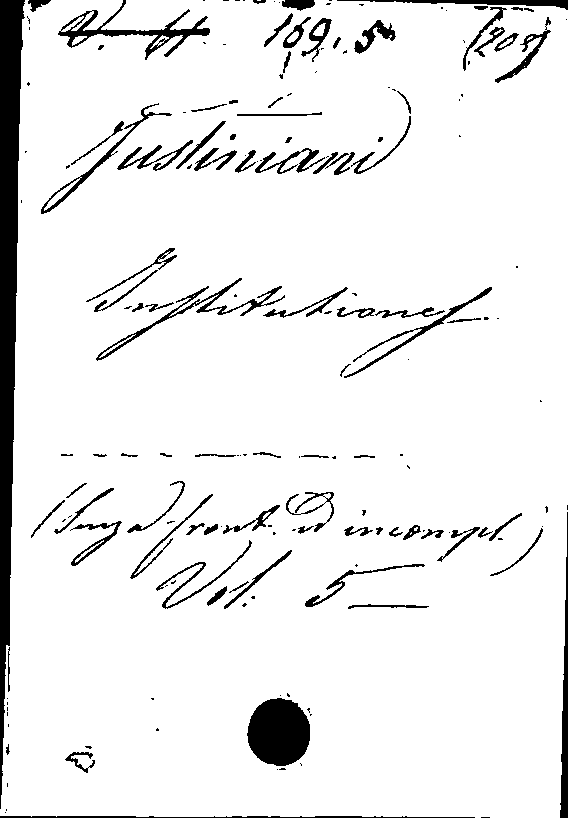 V. 169. 5 (205)
Justiniani
Institutiones
(Senza front. ed incompl.)
Vol. 5